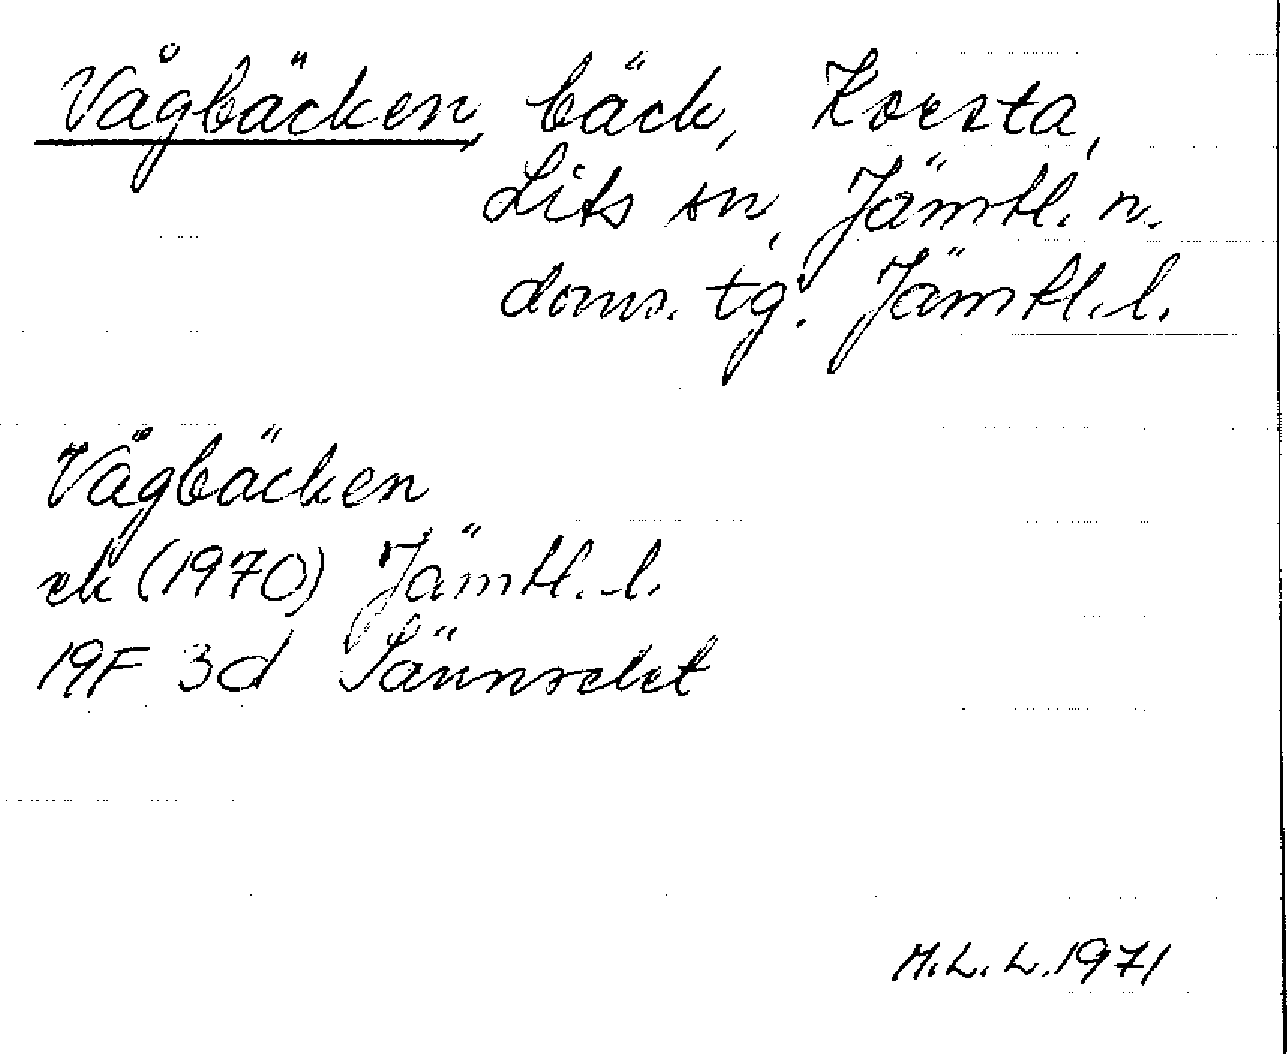 Vågbäcken, bäck, Korsta,
Lits sn, Jämtl. n.
doms. tg. Jämtl. l.
Vågbäcken
ek (1970) Jämtl. l.
19F 3d
M.L.L. 1971